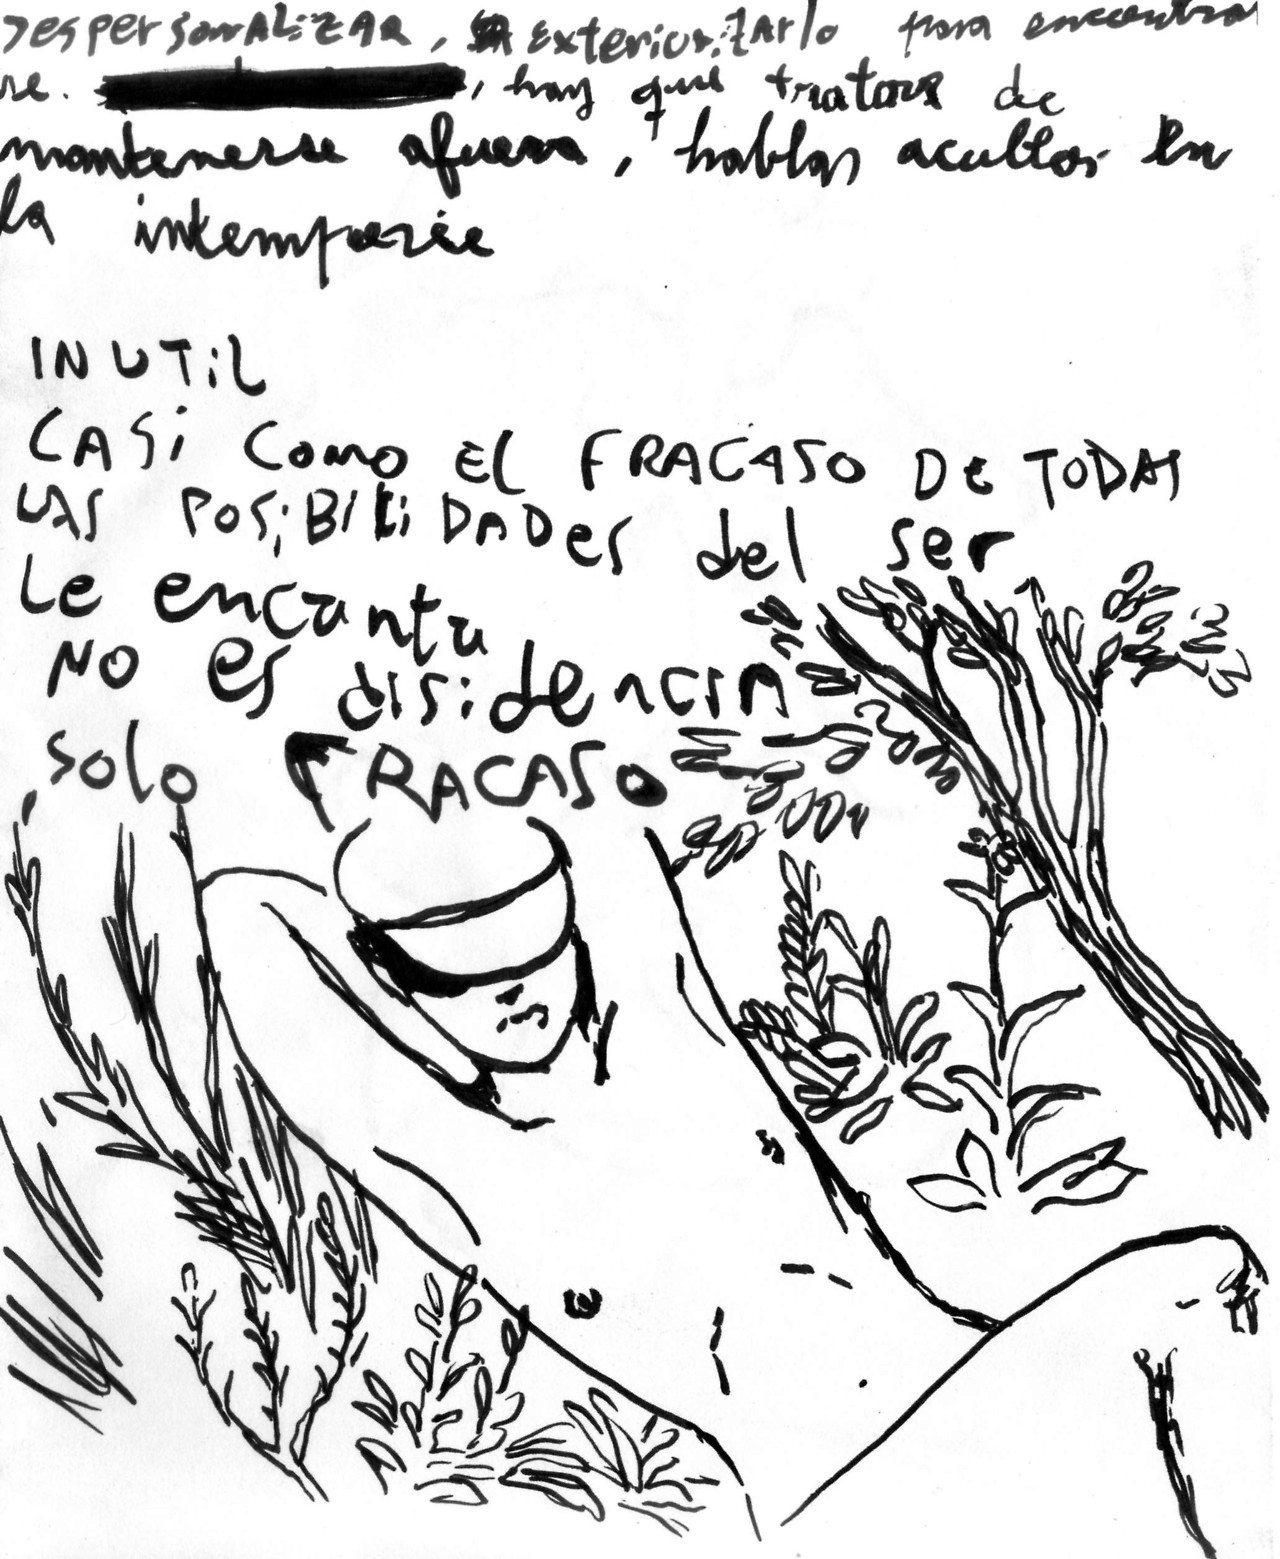 DESPERSONALIZAR, EXTERIORIZARLO para encontrar
se. , hay que tratar de
mantenerse afuera, hablar acullar en
la intemperie
INUTIL
CASI COMO EL FRACASO De TODAS
LAS POSIBILIDADes del ser
Le encanta
NO es disidencia
solo FRACASO